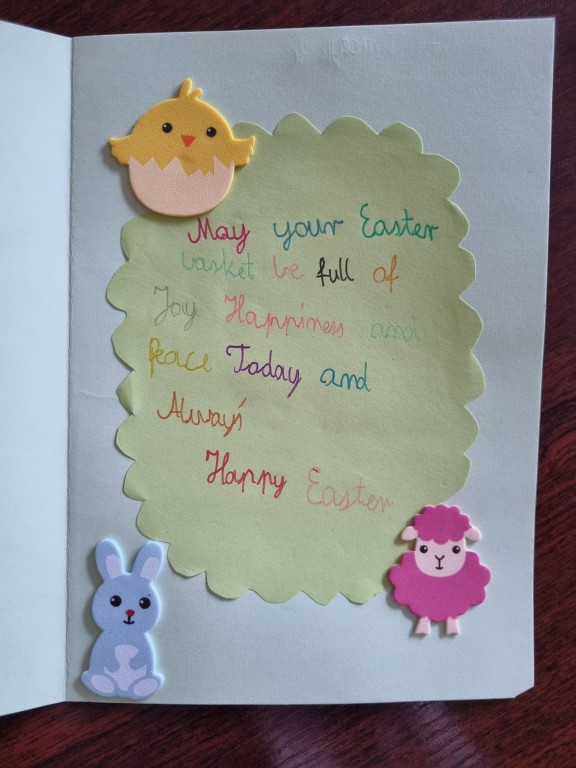 May your Easter
basket be full of
Joy Happiness and
Peace Today and
Always
Happy Easter